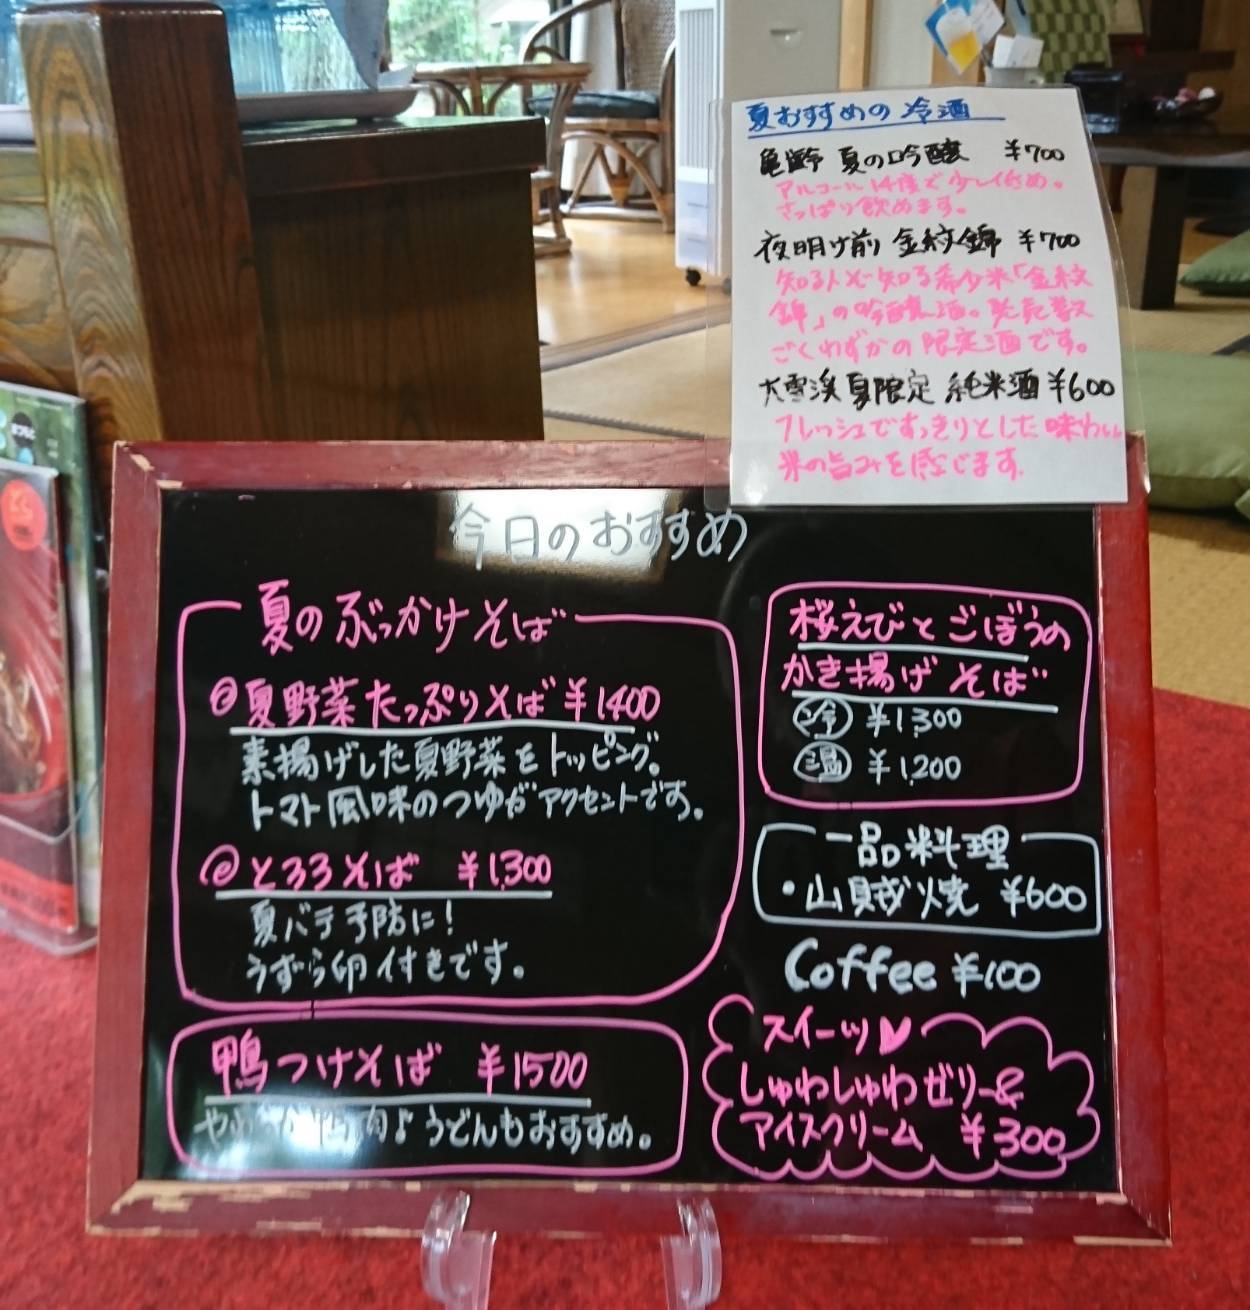 夏おすすめの冷酒
亀齢 夏の吟醸 ¥700
アルコール14度で少し低め。
さっぱり飲めます。
夜明け前 金紋錦 ¥700
知る人ぞ知る希少米「金紋
錦」の吟醸酒。発売数
ごくわずかの限定酒です。
大雪渓 夏限定 純米酒 ¥600
フレッシュですっきりとした味わい
米の旨みを感じます。
今日のおすすめ
夏のぶっかけそば
夏野菜たっぷりそば ¥1400
素揚げした夏野菜をトッピング。
トマト風味のつゆがアクセントです。
とろろそば ¥1,300
夏バテ予防に!
うずら卵付きです。
鴨つけそば ¥1500
肉♪うどんもおすすめ。
桜えびとごぼうの
かき揚げそば
冷 ¥1,300
温 ¥1,200
一品料理
・山賊焼 ¥600
Coffee ¥100
スイーツ♥
しゅわしゅわゼリー&
アイスクリーム ¥300